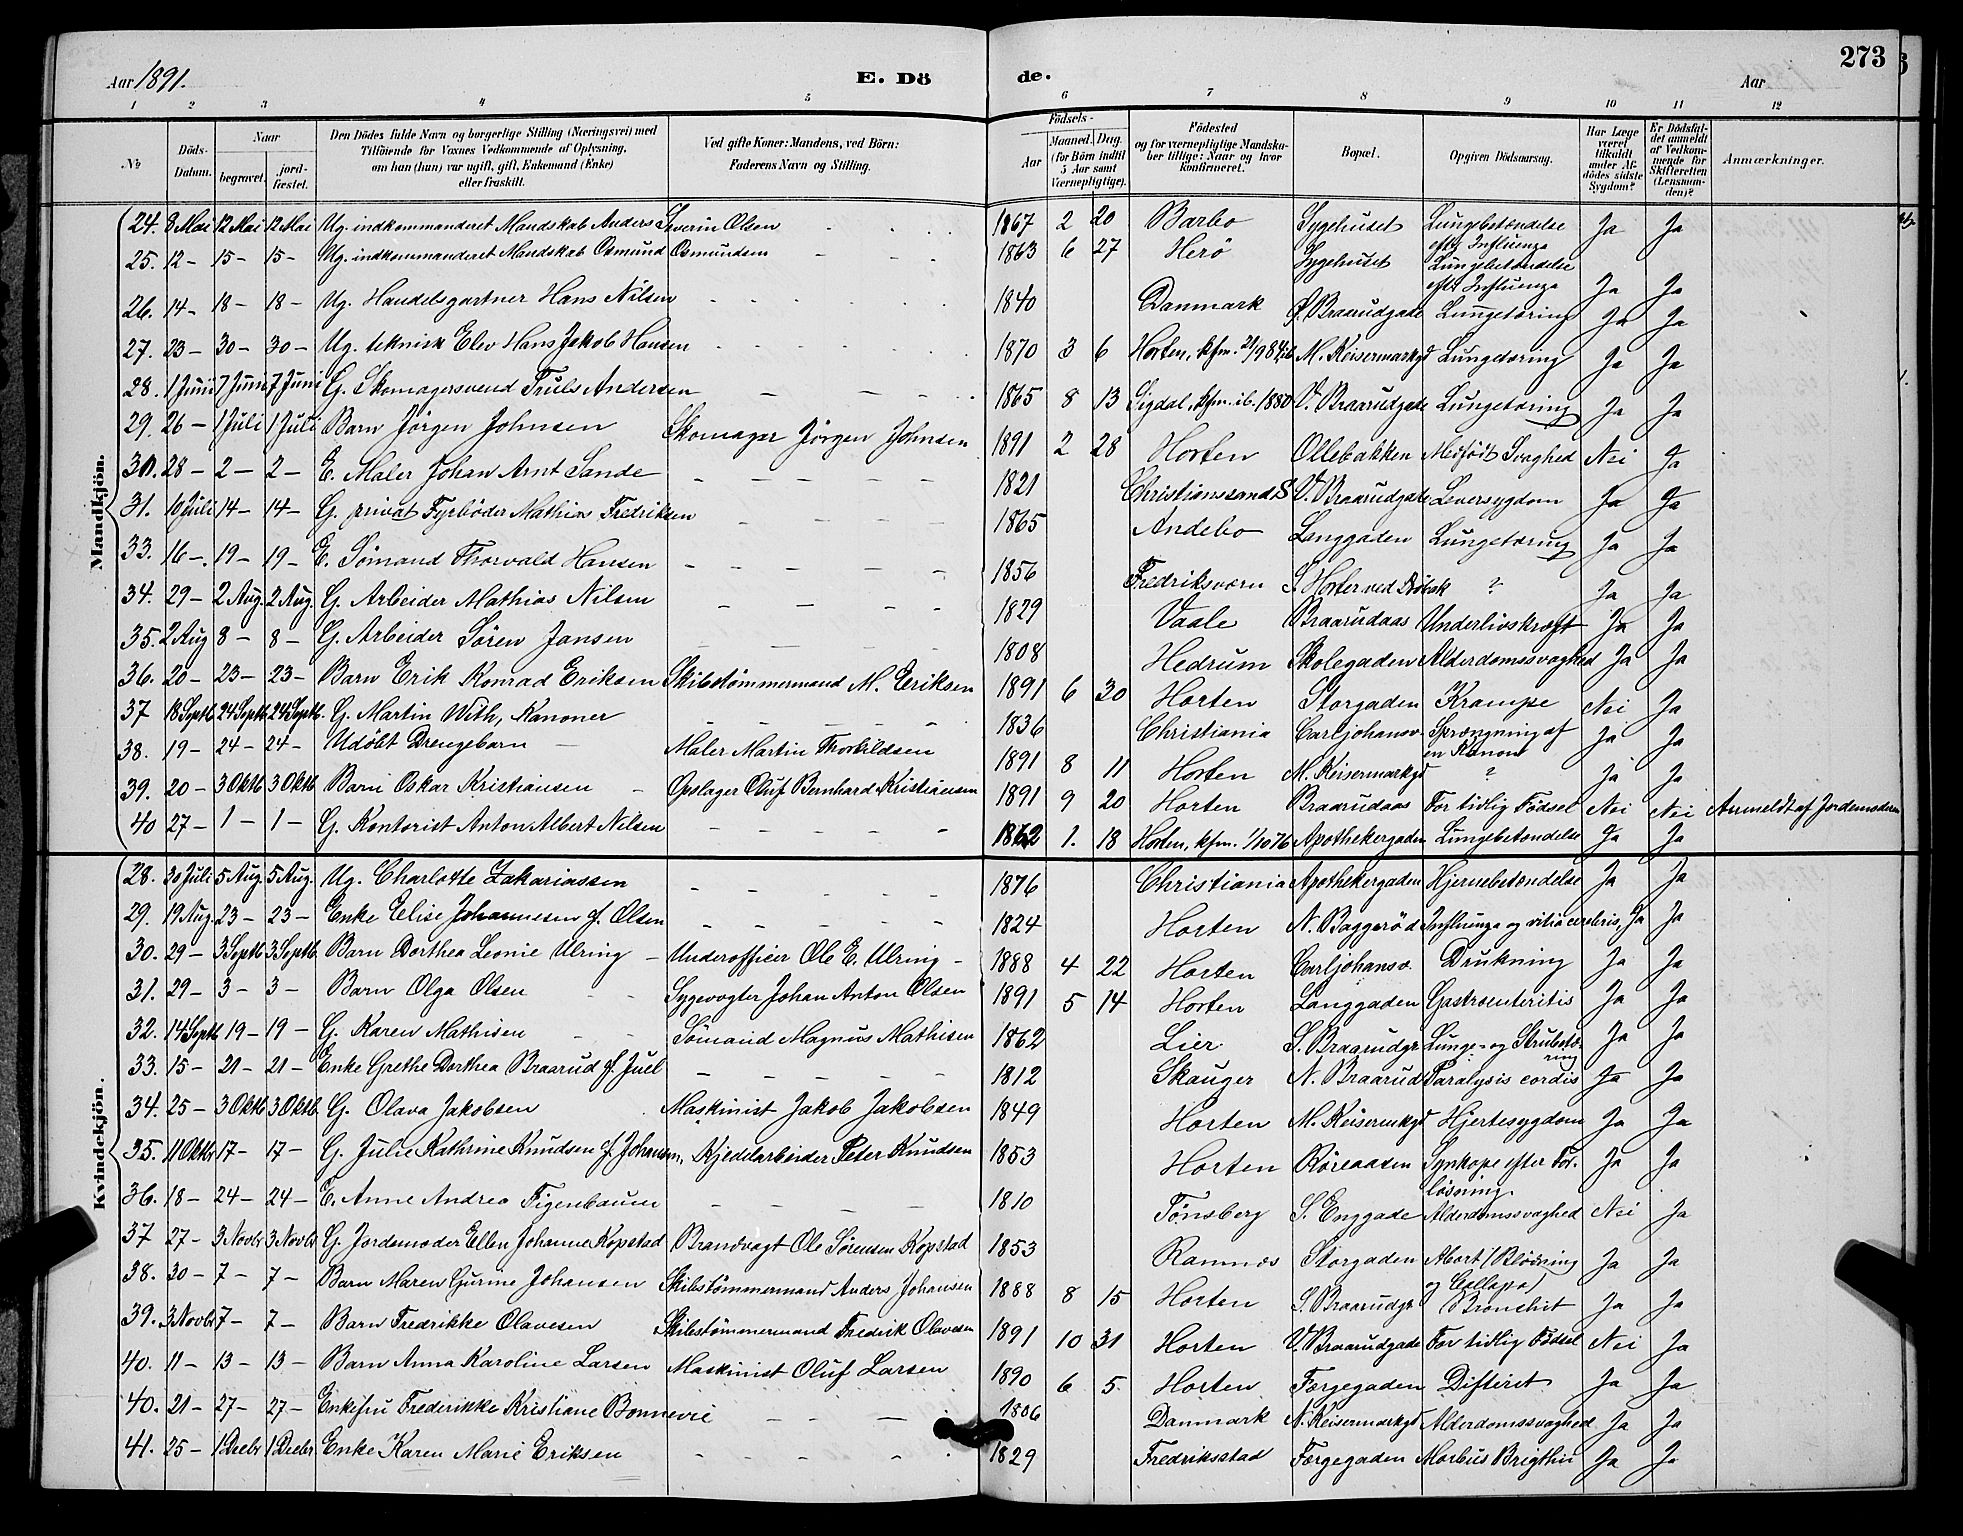 273
Aar 1891. E. Dö de. Aar
1 2 3 4 5 6 7 8 9 10 11 12
No Döds-Datum. Naar begravet. jordfæstet. Den Dödes fulde Navn og borgerlige Stilling (Næringsvei) med Tilföiende for Voxnes Vedkommende af Oplysning, om han (hun) var ugift, gift, Enkemand (Enke) eller fraskilt. Ved gifte Koner: Mandens, ved Börn: Faderens Navn og Stilling. Födsels- Aar Maaned. Dag. (for Börn indtil 5 Aar samt Værnepligtige). Födested og for værnepligtige Mandskaber tillige: Naar og hvor konfirmeret. Bopæl. Opgiven Dödsaarsag. Har Læge været tilkaldt under Afdödes sidste Sygdom? Er Dödsfaldet anmeldt af Vedkommende for Skifteretten (Lensmanden)? Anmærkninger.
Mandkjön.
24. 8 Mai 12 Mai 12 Mai Ug. indkommanderet Mandskab Anders Severin Olsen 1867 2 20 Barbo Sygehuset Lungebetændelse efter Influenza Ja Ja
25. 12 - 15 - 15 - Ug. indkommanderet Mandskab Osmund Osmundsen 1863 6 27 Herö Sygehuset Lungebetændelse eft. Influenza Ja Ja
26. 14 - 18 - 18 - Ug. Handelsgartner Hans Nilsen 1840 Danmark Ø. Braarudgade Lungetæring Ja Ja
27. 23 - 30 - 30 - Ug. teknisk Elev Hans Jakob Hansen 1870 3 6 Horten, kfm. M. Keisermarkgd Lungetæring Ja Ja
28. 1 Juni 7 Juni 7 Juni G. Skomagersvend Truls Andersen 1865 8 13 Sigdal, kfm. ib. 1880 V. Braarudgade Lungetæring Ja Ja
29. 26 - 1 Juli 1 Juli Barn Jörgen Johnsen Skomager Jörgen Johnsen 1891 2 28 Horten Ollebakken Medfödt Svaghed Nei Ja
30. 28 - 2 - 2 - E. Maler Johan Arnt Sande 1821 Christianssand S V. Braarudgade Leversygdom Ja Ja
31. 10 Juli 14 - 14 - G. privat Fyrböder Mathias Fredriksen 1865 Andebo Langgaden Lungetæring Ja Ja
33. 16 - 19 - 19 - E. Sömand Thorvald Hansen 1856 Fredriksværn S. Horten ved Dröbak ? Ja Ja
34. 29 - 2 Aug. 2 Aug. G. Arbeider Mathias Nilsen 1829 Vaale Braarudaas Underlivskræft Ja Ja
35. 2 Aug 8 - 8 - G. Arbeider Sören Jansen 1808 Hedrum Skolegaden Alderdomssvaghed Ja Ja
36. 20 - 23 - 23 - Barn Erik Konrad Eriksen Skibstömmermand M. Eriksen 1891 6 30 Horten Storgaden Krampe Nei Ja
37 18 Septb. 24 Septb. 24 Septb. G. Martin With, Kanoner 1836 Christiania Carljohansv. Sprængning af en Kanon Ja Ja
38. 19 - 24 - 24 - Udöbt Drengebarn - Maler Martin Thorkildsen 1891 8 11 Horten M. Keisermarkgd ? Ja Ja
39. 20 - 3 Oktb 3 Oktb Barn Oskar Kristiansen - Opslager Oluf Bernhard Kristiansen 1891 9 20 Horten Braarudaas For tidlig Födsel Nei Nei Anmeldt af Jordemoderen
40 27 - 1 - 1 - G. Kontorist Anton Albert Nilsen 1862 1. 18 Horten, kfm. 1/10 76 Apothekergaden Lungebetændelse Ja Ja
Kvindekjön.
28. 30 Juli 5 Aug. 5 Aug. Ug. Charlotte Zakariassen 1876 Christiania Apothekergaden Hjernebetændelse Ja Ja
29. 19 Aug. 23 - 23 - Enke Elise Johannesen f. Olsen 1824 Horten N. Baggeröd Influenza og vitia cerebris, Ja Ja
30. 29 - 3 Septb 3 Septb. Barn Dorthea Leonie Ulring - Underofficer Ole E. Ulring - 1888 4 22 Horten Carljohansv. Drukning Ja Ja
31. 29 - 3 - 3 - Barn Olga Olsen Sygevogter Johan Anton Olsen 1891 5 14 Horten Langgaden Gastroenteritis Ja Ja
32. 14 Septb 19 - 19 - G. Karen Mathisen Sömand Magnus Mathisen 1862 Lier S. Braarudgt Lunge- og Strubetæring Ja Ja
33. 15 - 21 - 21 - Enke Grethe Dorthea Braarud f. Juel 1812 Skauger N. Braarud Paralysis cordis Ja Ja
34. 25 - 3 Oktb 3 Oktb. G. Olava Jakobsen Maskinist Jakob Jakobsen 1849 Horten M. Keisermkgd Hjertesygdom Ja Ja
35. 11 Oktbr 17 - 17 - G. Julie Kathrine Knudsen f. Johansen, Kjedelarbeider Peter Knudsen 1853 Horten Röreaasen Synkope efter Forlösning. Ja Ja
36. 18 - 24 - 24 - E. Anne Andrea Figenbaum 1810 Tönsberg S. Enggade Alderdomssvaghed Nei Ja
37 27 - 3 Novbr 3 Novbr G. Jordemoder Ellen Johanne Kopstad Brandvagt Ole Sörensen Kopstad 1853 Ramnes Storgaden Abort (Blödning og Collaps) Ja Ja
38. 30 - 7 - 7 - Barn Maren Gurine Johansen Skibstömmermand Anders Johansen 1888 8 15 Horten S. Braarudgt Bronchit Ja Ja
39. 3 Novbr 7 - 7 - Barn Fredrikke Olavesen Skibstömmermand Frederik Olavesen 1891 10 31 Horten V. Braarudgade For tidlig Födsel Nei Ja
40. 11 - 13 - 13 - Barn Anna Karoline Larsen Maskinist Oluf Larsen 1890 6 5. Horten Færgegaden Difterit Ja Ja
40. 21 - 27 - 27 - Enkefru Frederikke Kristiane Bonnevie 1806 Danmark N. Keisermarkgd Alderdomssvaghed Ja Ja
41. 25 - 1 Decbr 1 Decbr Enke Karen Marie Eriksen 1829 Fredriksstad Færgegaden Morbus Brigthii Ja Ja